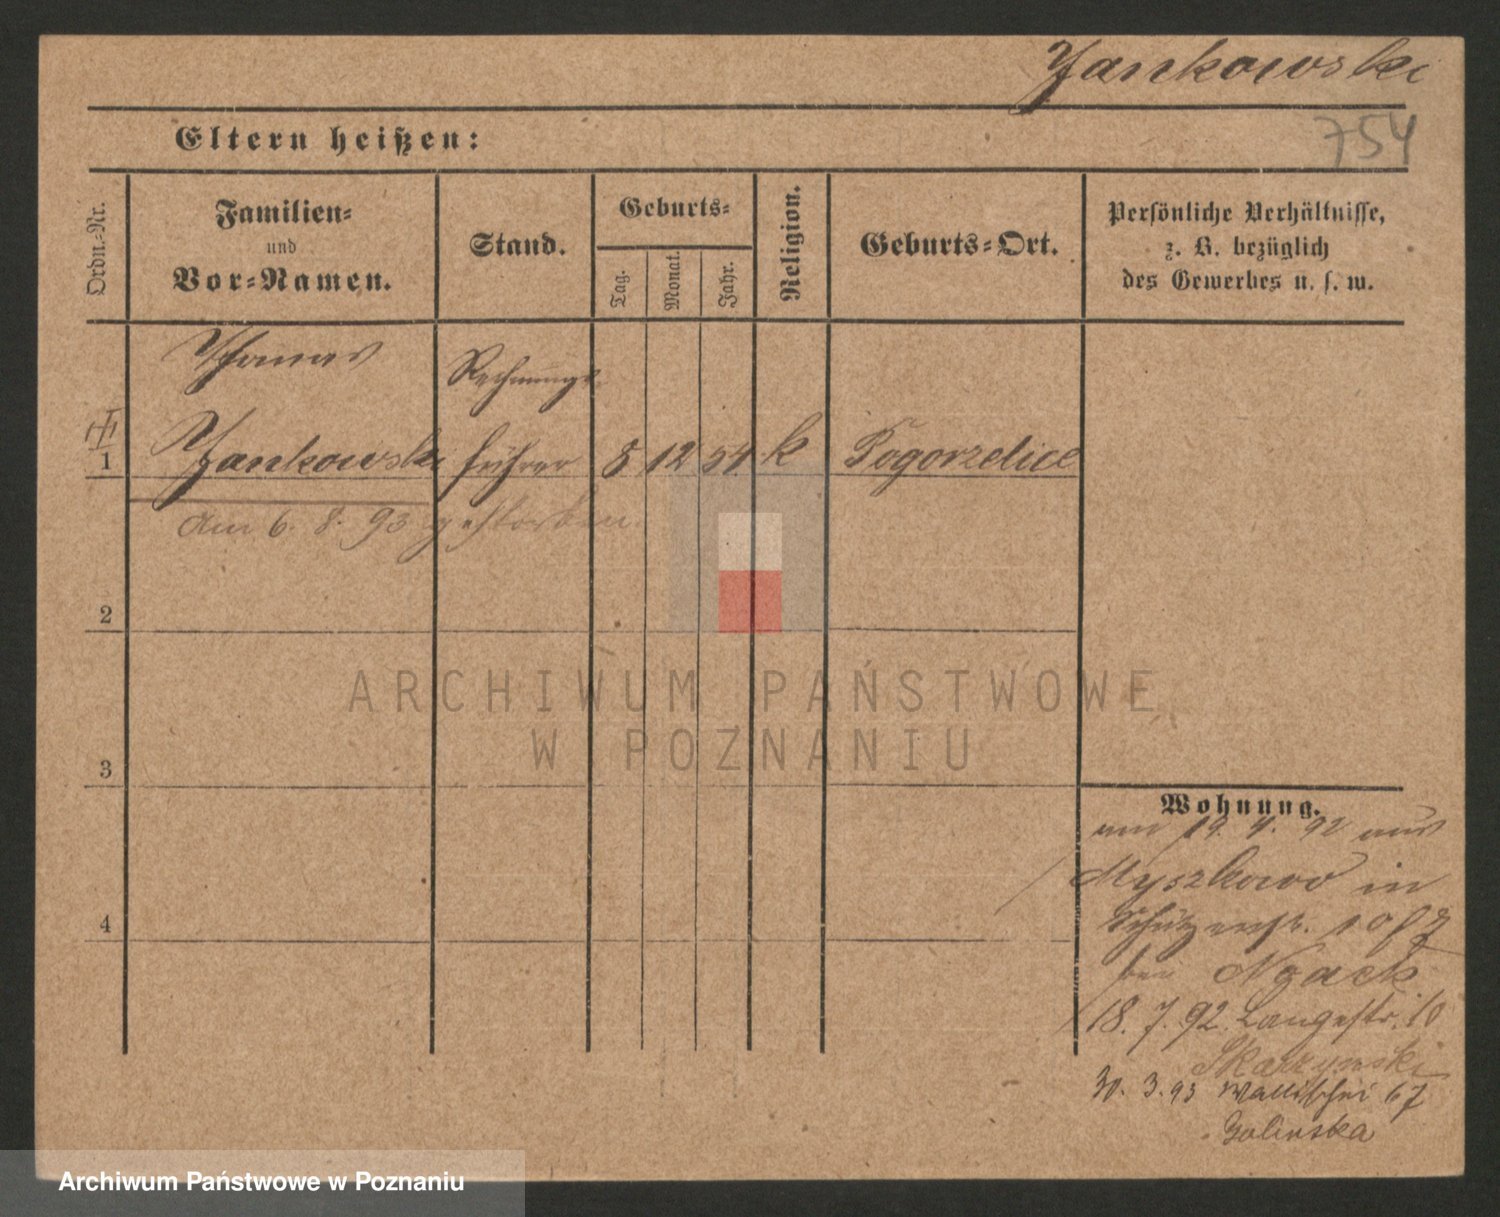 Jankowski
754
Eltern heißen:
Ordn.-Nr.
Familien-
und
Vor-Namen.
Stand.
Geburts-
Tag.
Monat.
Jahr.
Religion.
Geburts-Ort.
Persönliche Verhältnisse,
z. B. bezüglich
des Gewerbes u. s. w.
Thomas
Rechnungs
1 Jankowski führer 8 12 54 k Pogorzelice
am 6. 8. 93 gestorben.
2
ARCHIWUM PAŃSTWOWE
W POZNANIU
3
Wohnung.
am 19. 4. 92 aus
Myszkowo in
Schützenstr. 10
bei Noack
4
18. 7. 92 Langestr. 10
Skarzynski
30. 3. 93 Wallischei 67
Golinska
Archiwum Państwowe w Poznaniu